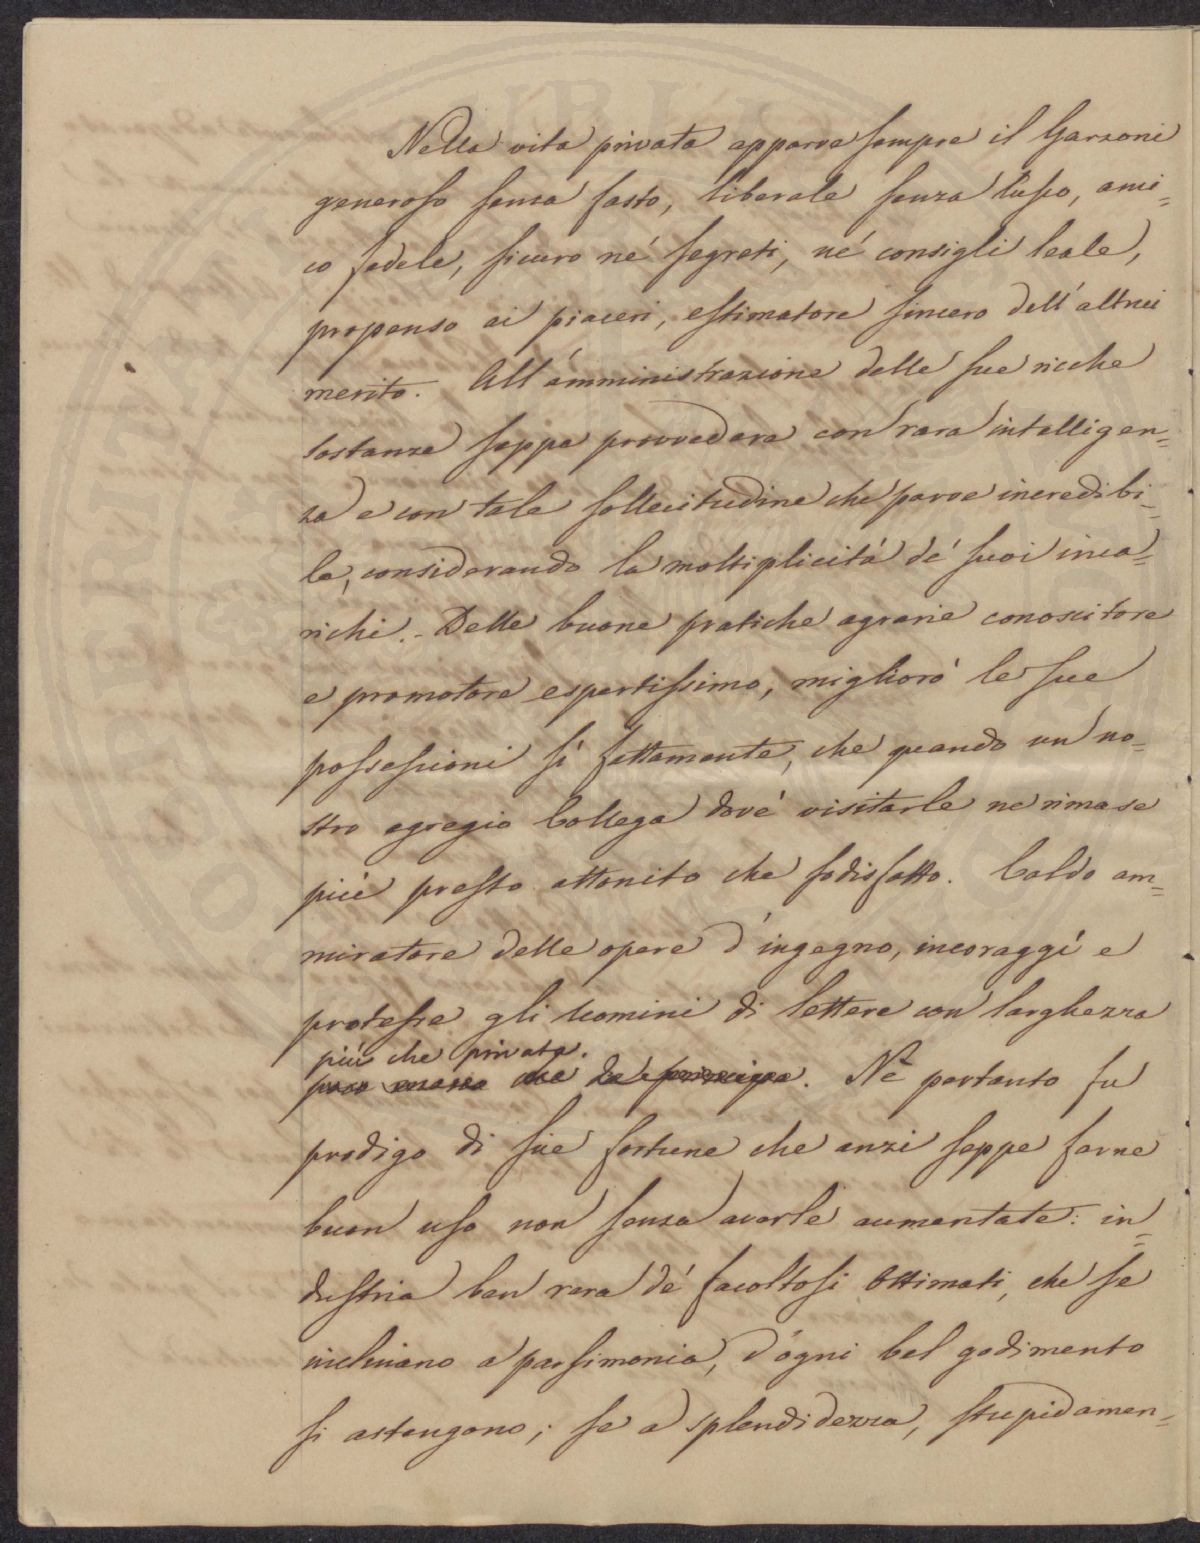 Nella vita privata apparve sempre il Garzoni
generoso senza fasto, liberale senza lusso, ami=
co fedele, sicuro né segreti, né consigli leale,
propenso ai piaceri, estimatore sincero dell'altrui
merito. All'amministrazione delle sue ricche
sostanze seppe provvedere con rara intelligen=
za e con tale sollecitudine che parve incredibi=
le, considerando la moltiplicità de' suoi inca=
richi. - Delle buone pratiche agrarie conoscitore
e promotore espertissimo, migliorò le sue
possessioni sì fattamente, che quando un no=
stro egregio Collega dové visitarle ne rimase
più presto attonito che sodisfatto. Caldo am=
miratore delle opere d'ingegno, incoraggì e
protesse gli uomini di lettere con larghezza
più che privata.
poco meno che da principe. Nè pertanto fu
prodigo di sue fortune che anzi seppe farne
buon uso non senza averle aumentate: in=
dustria ben rara de' facoltosi Ottimati, che se
inclinano a parsimonia, d'ogni bel godimento
si astengono; se a splendidezza, stupidamen=